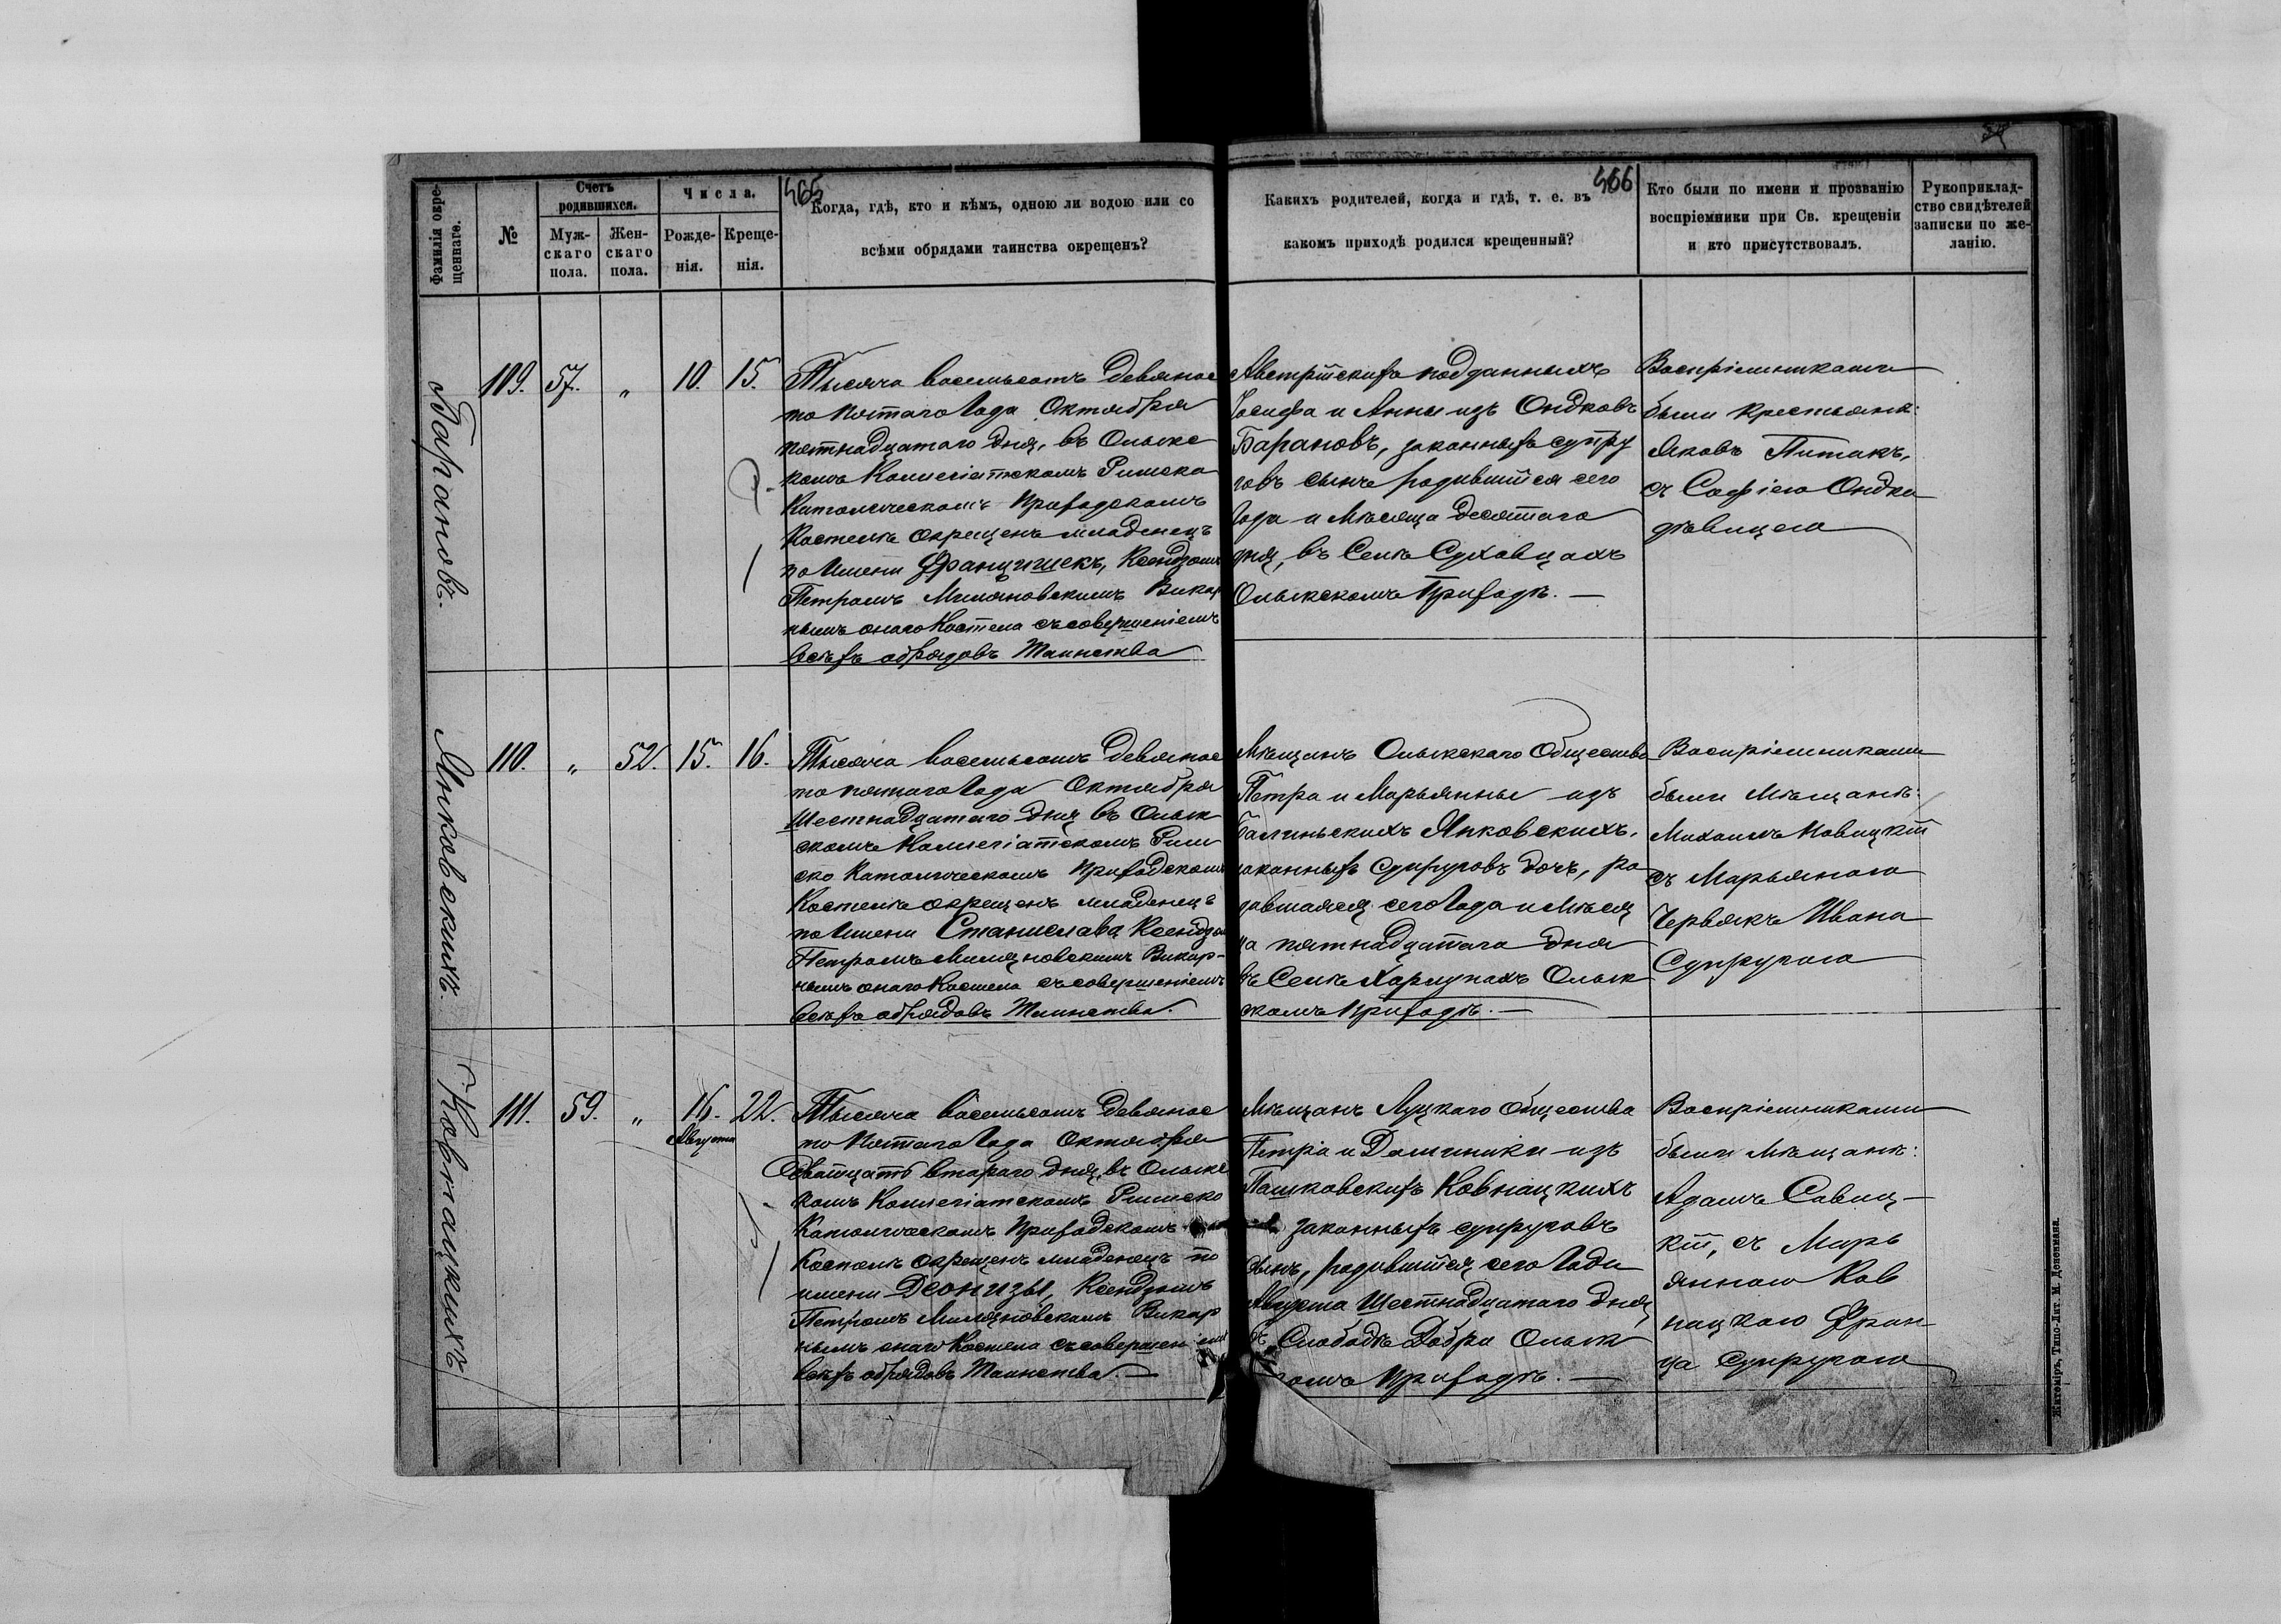 565
566
Фамилія окре-
щеннаго.
№
Счетъ
родившихся.
Муж-
скаго
пола.
Жен-
скаго
пола.
Числа.
Рожде-
нія.
Креще-
нія.
Когда, гдѣ, кто и кѣмъ, одною ли водою или со
всѣми обрядами таинства окрещенъ?
Какихъ родителей, когда и гдѣ, т. е. въ
какомъ приходѣ родился крещенный?
Кто были по имени и прозванію
воспріемники при Св. крещеніи
и кто присутствовалъ.
Рукоприклад-
ство свидѣтелей
записки по же-
ланію.
Барановъ.
109. 57. „ 10. 15.
Тысяча восемьсотъ девянос
то пятаго Года Октября
пятнадцатаго дня, въ Олыкс
комъ Коллегіатскомъ Римско
Католическомъ Приходскомъ
Костелѣ окрещенъ младенецъ
по Имени Францишекъ, Ксендзомъ
Петромъ Миляновскимъ Викар
нымъ онаго Костела съ совершеніемъ
всѣхъ обрядовъ Таинства
Австрійскихъ подданныхъ
Іосифа и Анны изъ Ондковъ
Барановъ, законныхъ супру
говъ сынъ родившійся сего
Года и Мѣсяца десятаго
дня, въ Селѣ Суховцахъ
Олыкскомъ Приходѣ. —
Воспріемниками
были крестьяне:
Яковъ Питакъ,
съ Софіею Ондка
дѣвицею
Янковскихъ.
110. „ 52. 15. 16.
Тысяча восемьсотъ девянос
то пятаго Года Октября
Шестнадцатаго дня въ Олык
скомъ Коллегіатскомъ Рим
ско Католическомъ Приходскомъ
Костелѣ окрещенъ младенецъ
по Имени Станислава Ксендзомъ
Петромъ Миляновскимъ Викар-
нымъ онаго Костела съ совершеніемъ
всѣхъ обрядовъ Таинства.
Мѣщанъ Олыкскаго Общества
Петра и Марьянны изъ
Балиньскихъ Янковскихъ,
законныхъ Супруговъ дочь, ро
дившаяся сего Года и Мѣся
ца пятнадцатаго дня
въ Селѣ Хорлупахъ Олык
скомъ Приходѣ. —
Воспріемниками
были Мѣщане:
Михаилъ Новицкій
съ Марьяною
Червякъ Ивана
Супругою
Ковнацкихъ
111. 59. „ 16. 22.
Августа
Тысяча восемьсотъ девянос
то пятаго Года Октября
дватцать втораго дня, въ Олыкс
комъ Коллегіатскомъ Римско
Католическомъ Приходскомъ
Костелѣ окрещенъ младенецъ по
имени Деонизы, Ксендзомъ
Петромъ Миляновскимъ Викар
нымъ онаго Костела съ совершеніемъ
всѣхъ обрядовъ Таинства. —
Мѣщанъ Луцкаго Общества
Петра и Доминики изъ
Пашковскихъ Ковнацкихъ
законныхъ супруговъ
сынъ, родившійся сего Года
Августа Шестнадцатаго дня
въ Слободѣ Добра Олык
скомъ Приходѣ. —
Воспріемниками
были Мѣщане:
Адамъ Савиц-
кій, съ Марь
янною Ков
нацкою Фран
ца Супругою
Житоміръ, Типо-Лит. М. Доненмана.